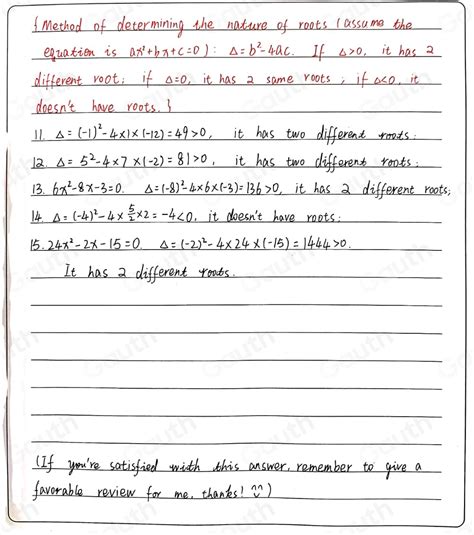 { Method of determining the nature of roots (assume the
equation is ax²+bx+c=0) : Δ=b²-4ac. If Δ>0, it has 2
different root; if Δ=0, it has 2 same roots ; if Δ<0, it
doesn't have roots. }
11. Δ=(-1)²-4×1×(-12)=49>0, it has two different roots;
12. Δ= 5²-4×7×(-2)=81>0, it has two different roots;
13. 6x²-8x-3=0. Δ=(-8)²-4×6×(-3)=136>0, it has 2 different roots;
14. Δ=(-4)²-4×5/2×2=-4<0, it doesn't have roots;
15. 24x²-2x-15=0. Δ=(-2)²-4×24×(-15)=1444>0.
It has 2 different roots.
(If you're satisfied with this answer, remember to give a
favorable review for me, thanks! ^^)
Gauth